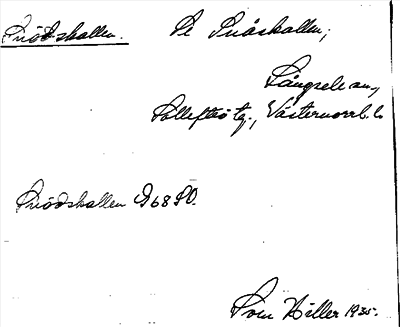 Snödskallen. Se Snåskallen;
Långsele sn.,
Sollefteå tg., Västernorrl. l.
Snödskallen 968 SO.
Sven Hiller 1935.